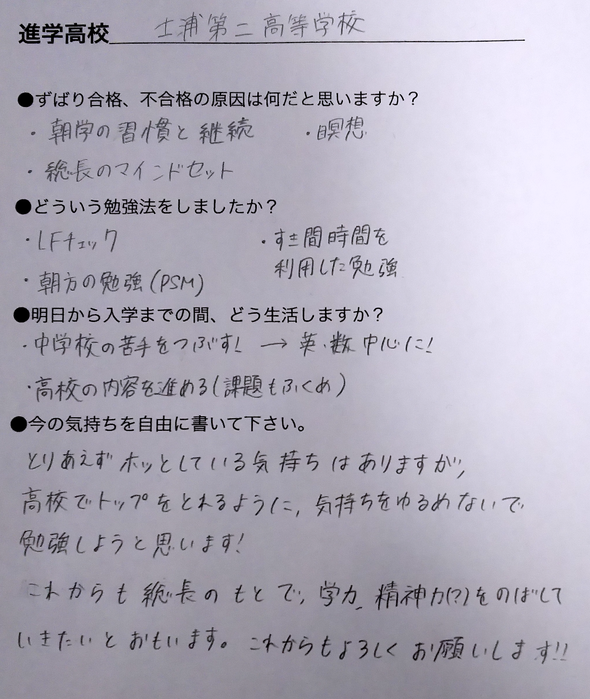 進学高校 土浦第二高等学校
●ずばり合格、不合格の原因は何だと思いますか?
・朝学の習慣と継続 ・瞑想
・総長のマインドセット
●どういう勉強法をしましたか?
・LFチェック ・すき間時間を
利用した勉強
・朝方の勉強(PSM)
●明日から入学までの間、どう生活しますか?
・中学校の苦手をつぶす! → 英・数中心に!
・高校の内容を進める(課題もふくめ)
●今の気持ちを自由に書いて下さい。
とりあえずホッとしている気持ちはありますが、
高校でトップをとれるように、気持ちをゆるめないで
勉強しようと思います!
これからも総長のもとで、学力、精神力(?)をのばして
いきたいとおもいます。これからもよろしくお願いします!!